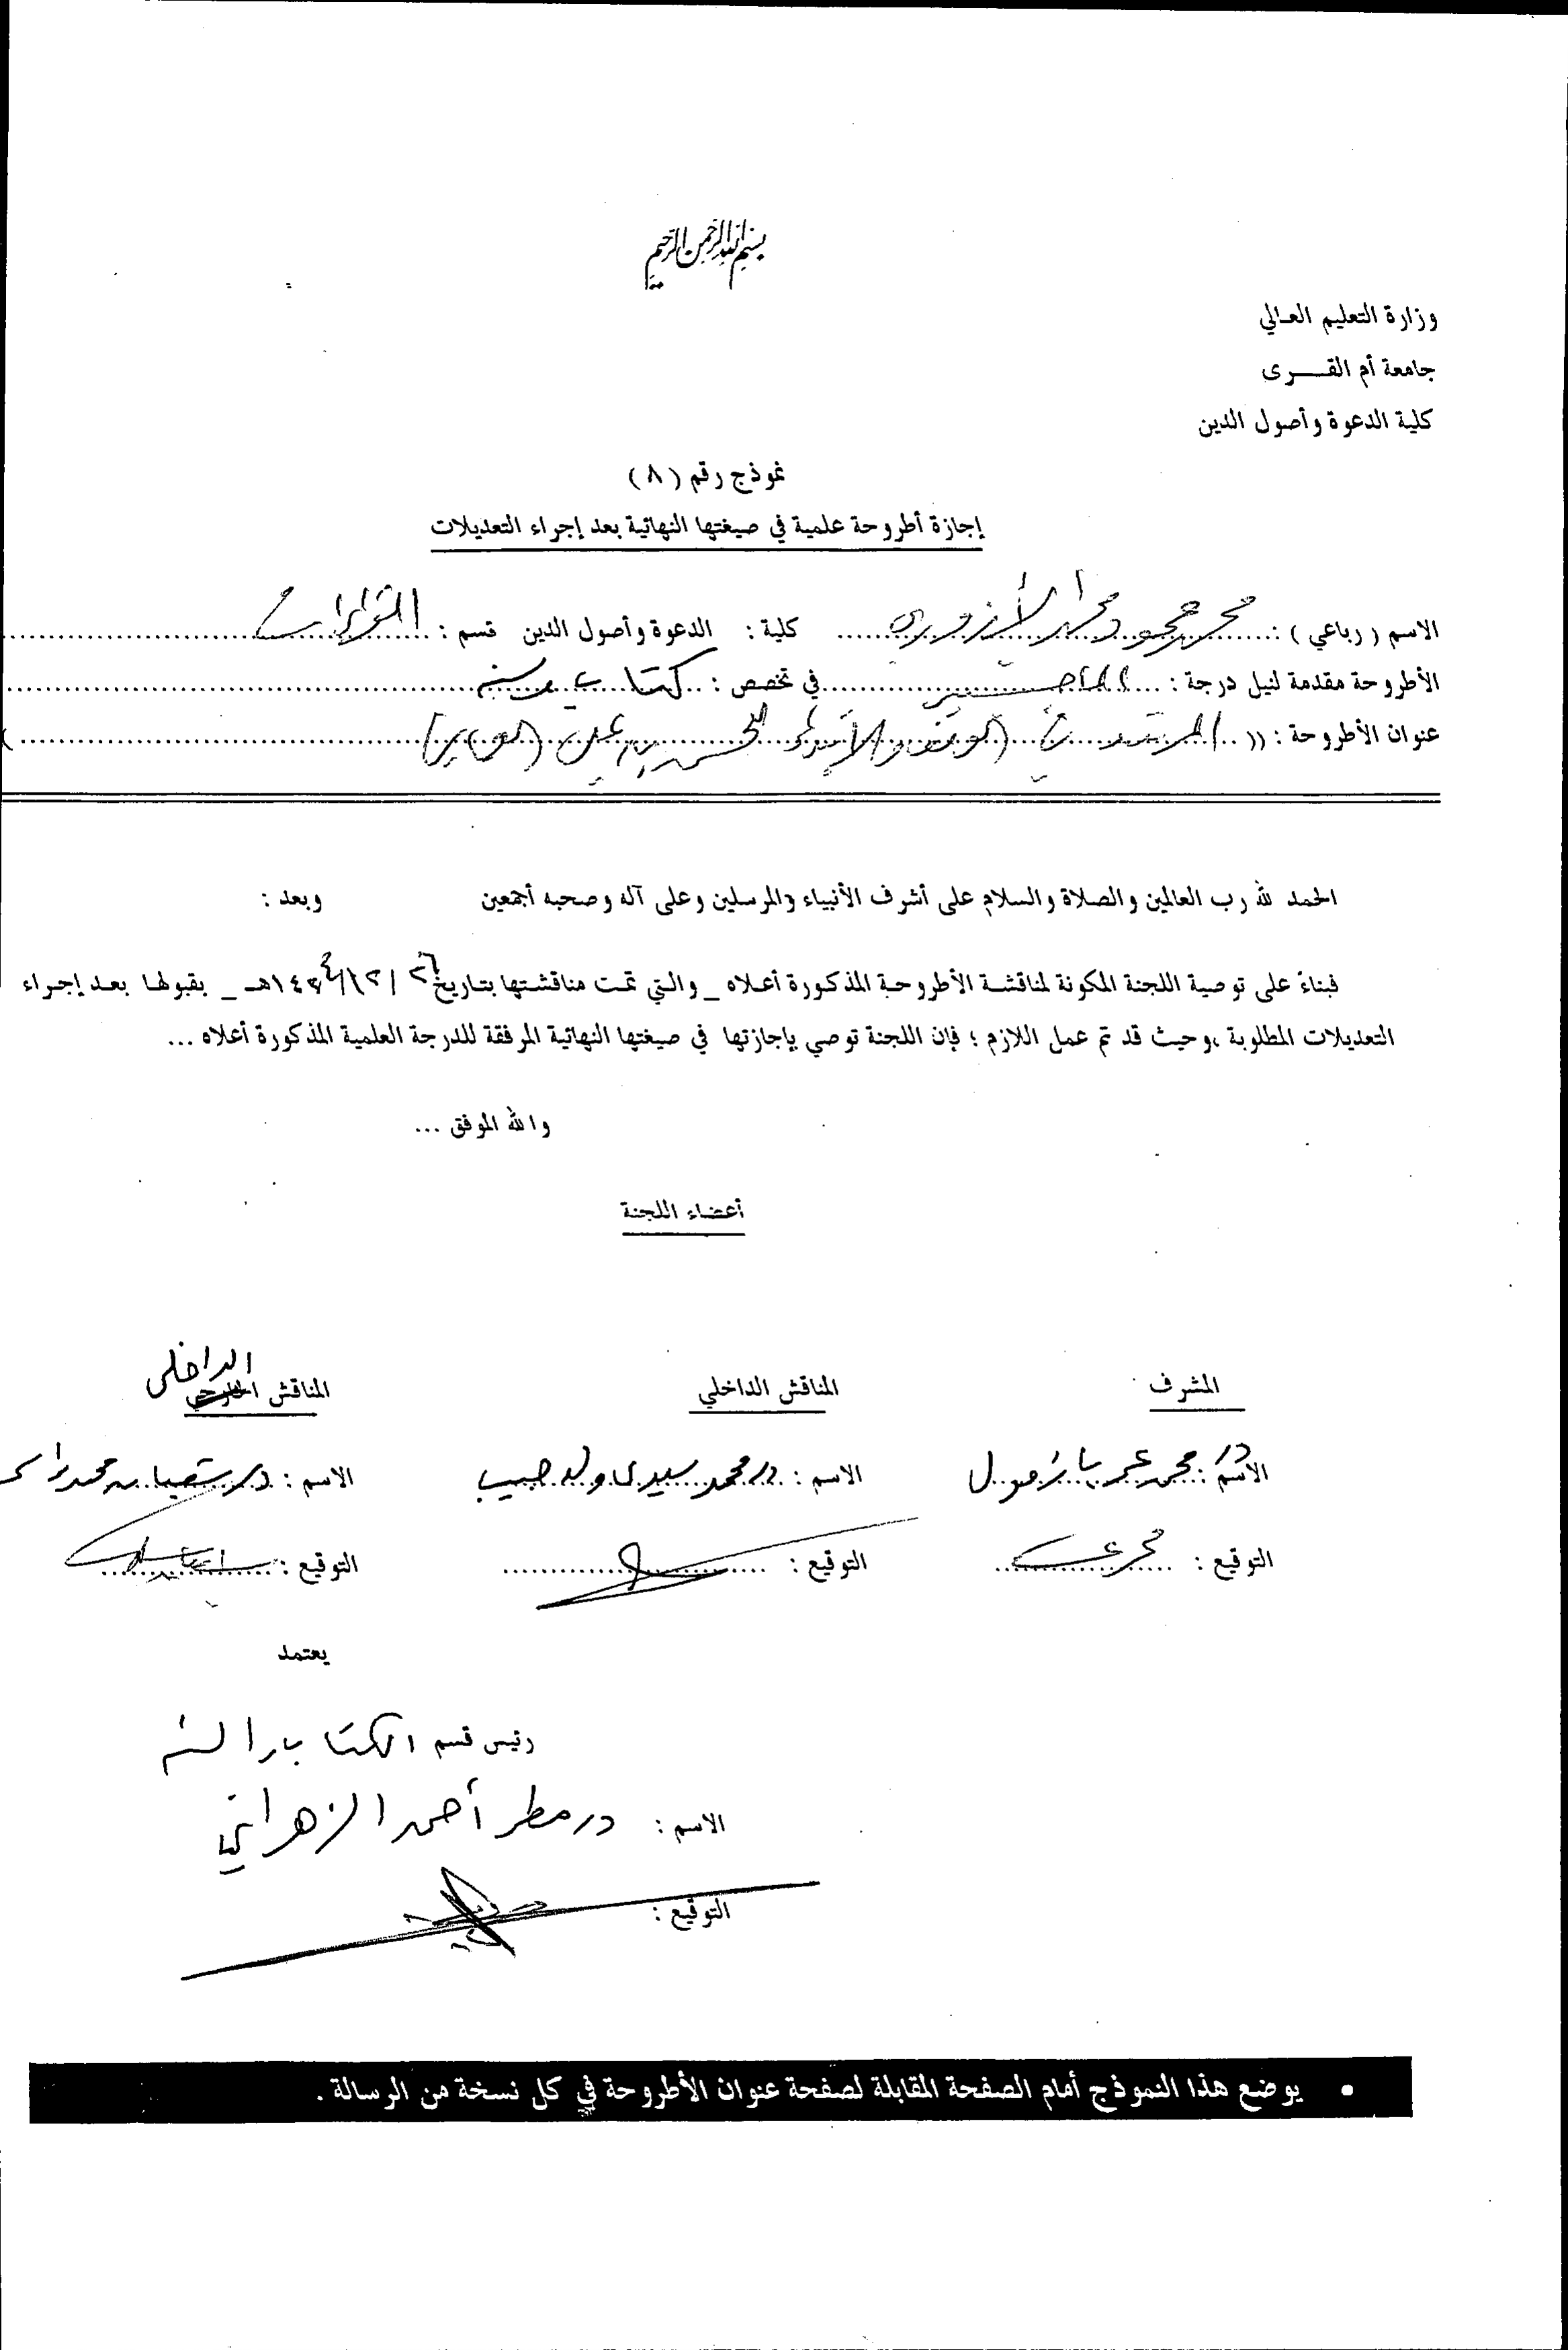 بسم الله الرحمن الرحيم
وزارة التعليم العالي
جامعة أم القرى
كلية الدعوة وأصول الدين
نموذج رقم (٨)
إجازة أطروحة علمية في صيغتها النهائية بعد إجراء التعديلات
الاسم (رباعي) : محمود محمد كلية : الدعوة وأصول الدين قسم : القراءات
الأطروحة مقدمة لنيل درجة : الماجستير في تخصص : كتاب وسنة
عنوان الأطروحة : (( المرشد في الوقف والابتداء
الحمد لله رب العالمين والصلاة والسلام على أشرف الأنبياء والمرسلين وعلى آله وصحبه أجمعين وبعد :
فبناءً على توصية اللجنة المكونة لمناقشة الأطروحة المذكورة أعلاه _ والتي تمت مناقشتها بتاريخ هـ _ بقبولها بعد إجراء
التعديلات المطلوبة ،وحيث قد تم عمل اللازم ؛ فإن اللجنة توصي بإجازتها في صيغتها النهائية المرفقة للدرجة العلمية المذكورة أعلاه ...
والله الموفق ...
أعضاء اللجنة
المشرف المناقش الداخلي المناقش الخارجي الداخلي
الاسم : د/ محمد عمر بازمول الاسم : د/ محمد سيدي ولد حبيب الاسم : د/ شعبان محمد
التوقيع : محمد عمر التوقيع : التوقيع :
يعتمد
رئيس قسم الكتاب والسنة
الاسم : د/ مطر أحمد الزهراني
التوقيع :
• يوضع هذا النموذج أمام الصفحة المقابلة لصفحة عنوان الأطروحة في كل نسخة من الرسالة .